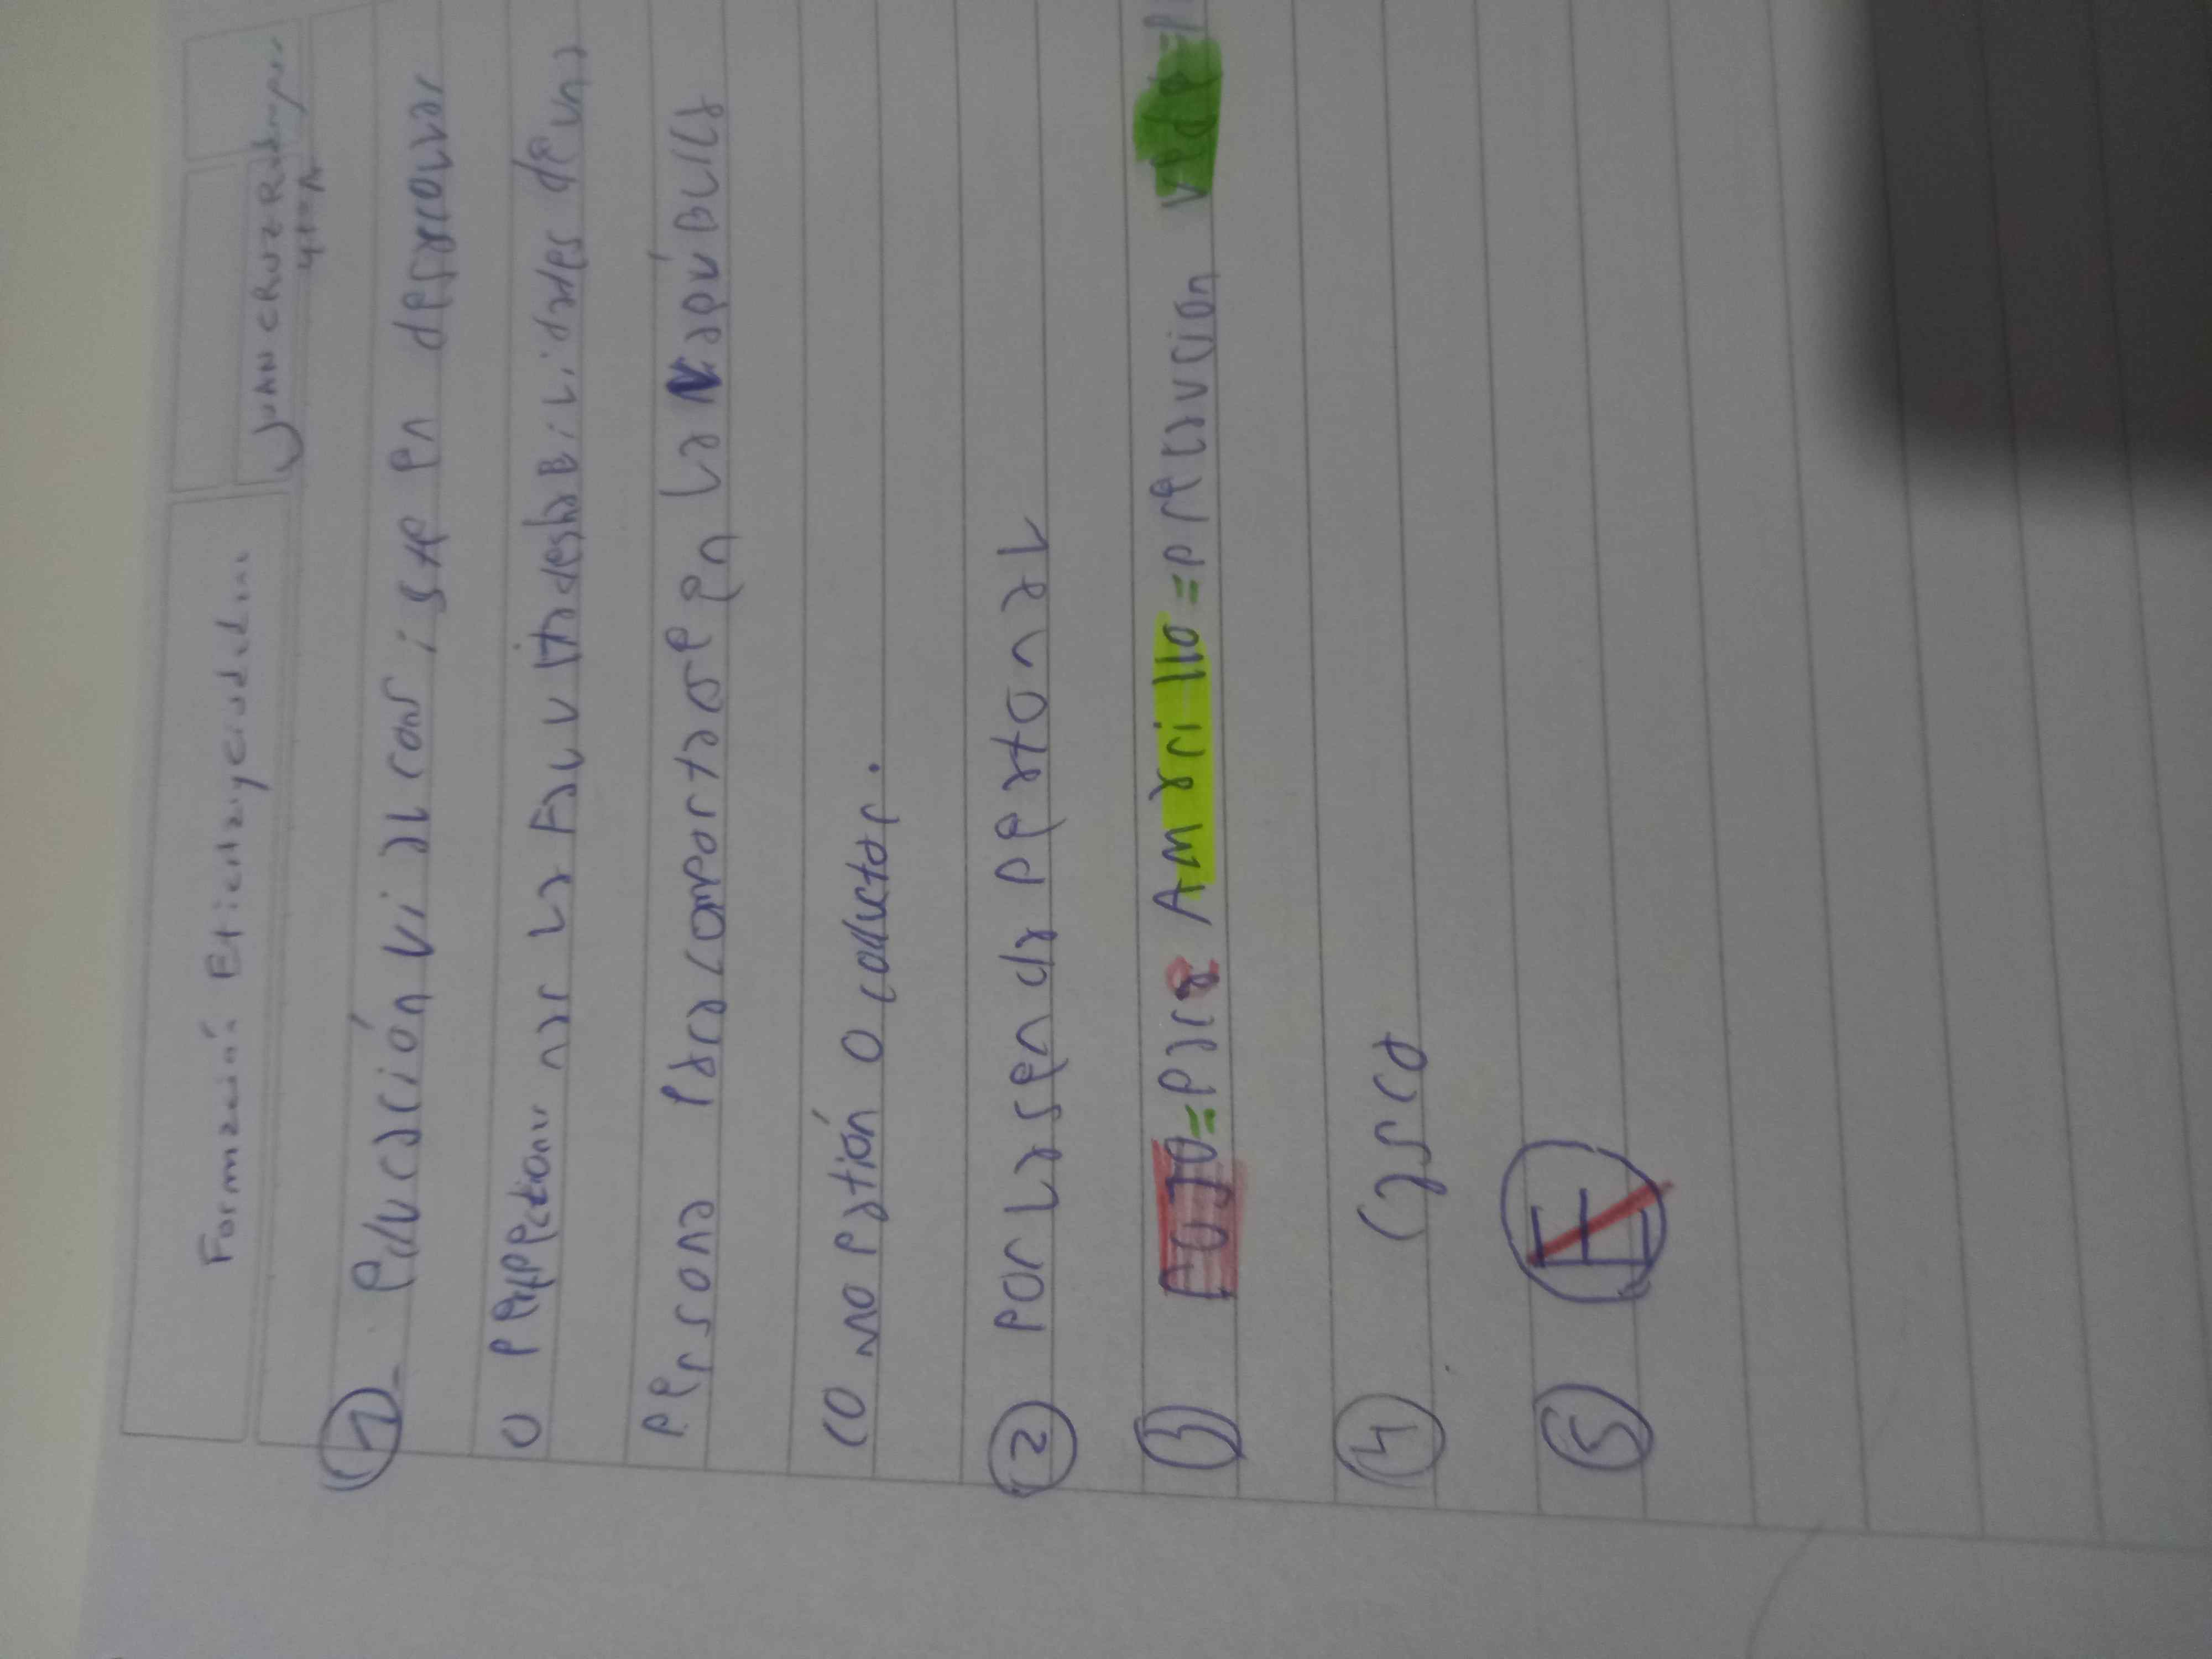 Formación Etica y ciudadana
JUAN CRUZ
4to A
1 - educación vial consiste en desarrollar
o perfeccionar la facultades habilidades de una
persona para comportarse en la vía pública
como peatón o coductor.
2 por la senda peatonal
3 rojo = para Amarillo = precaucion verde =
4 casco
5 E